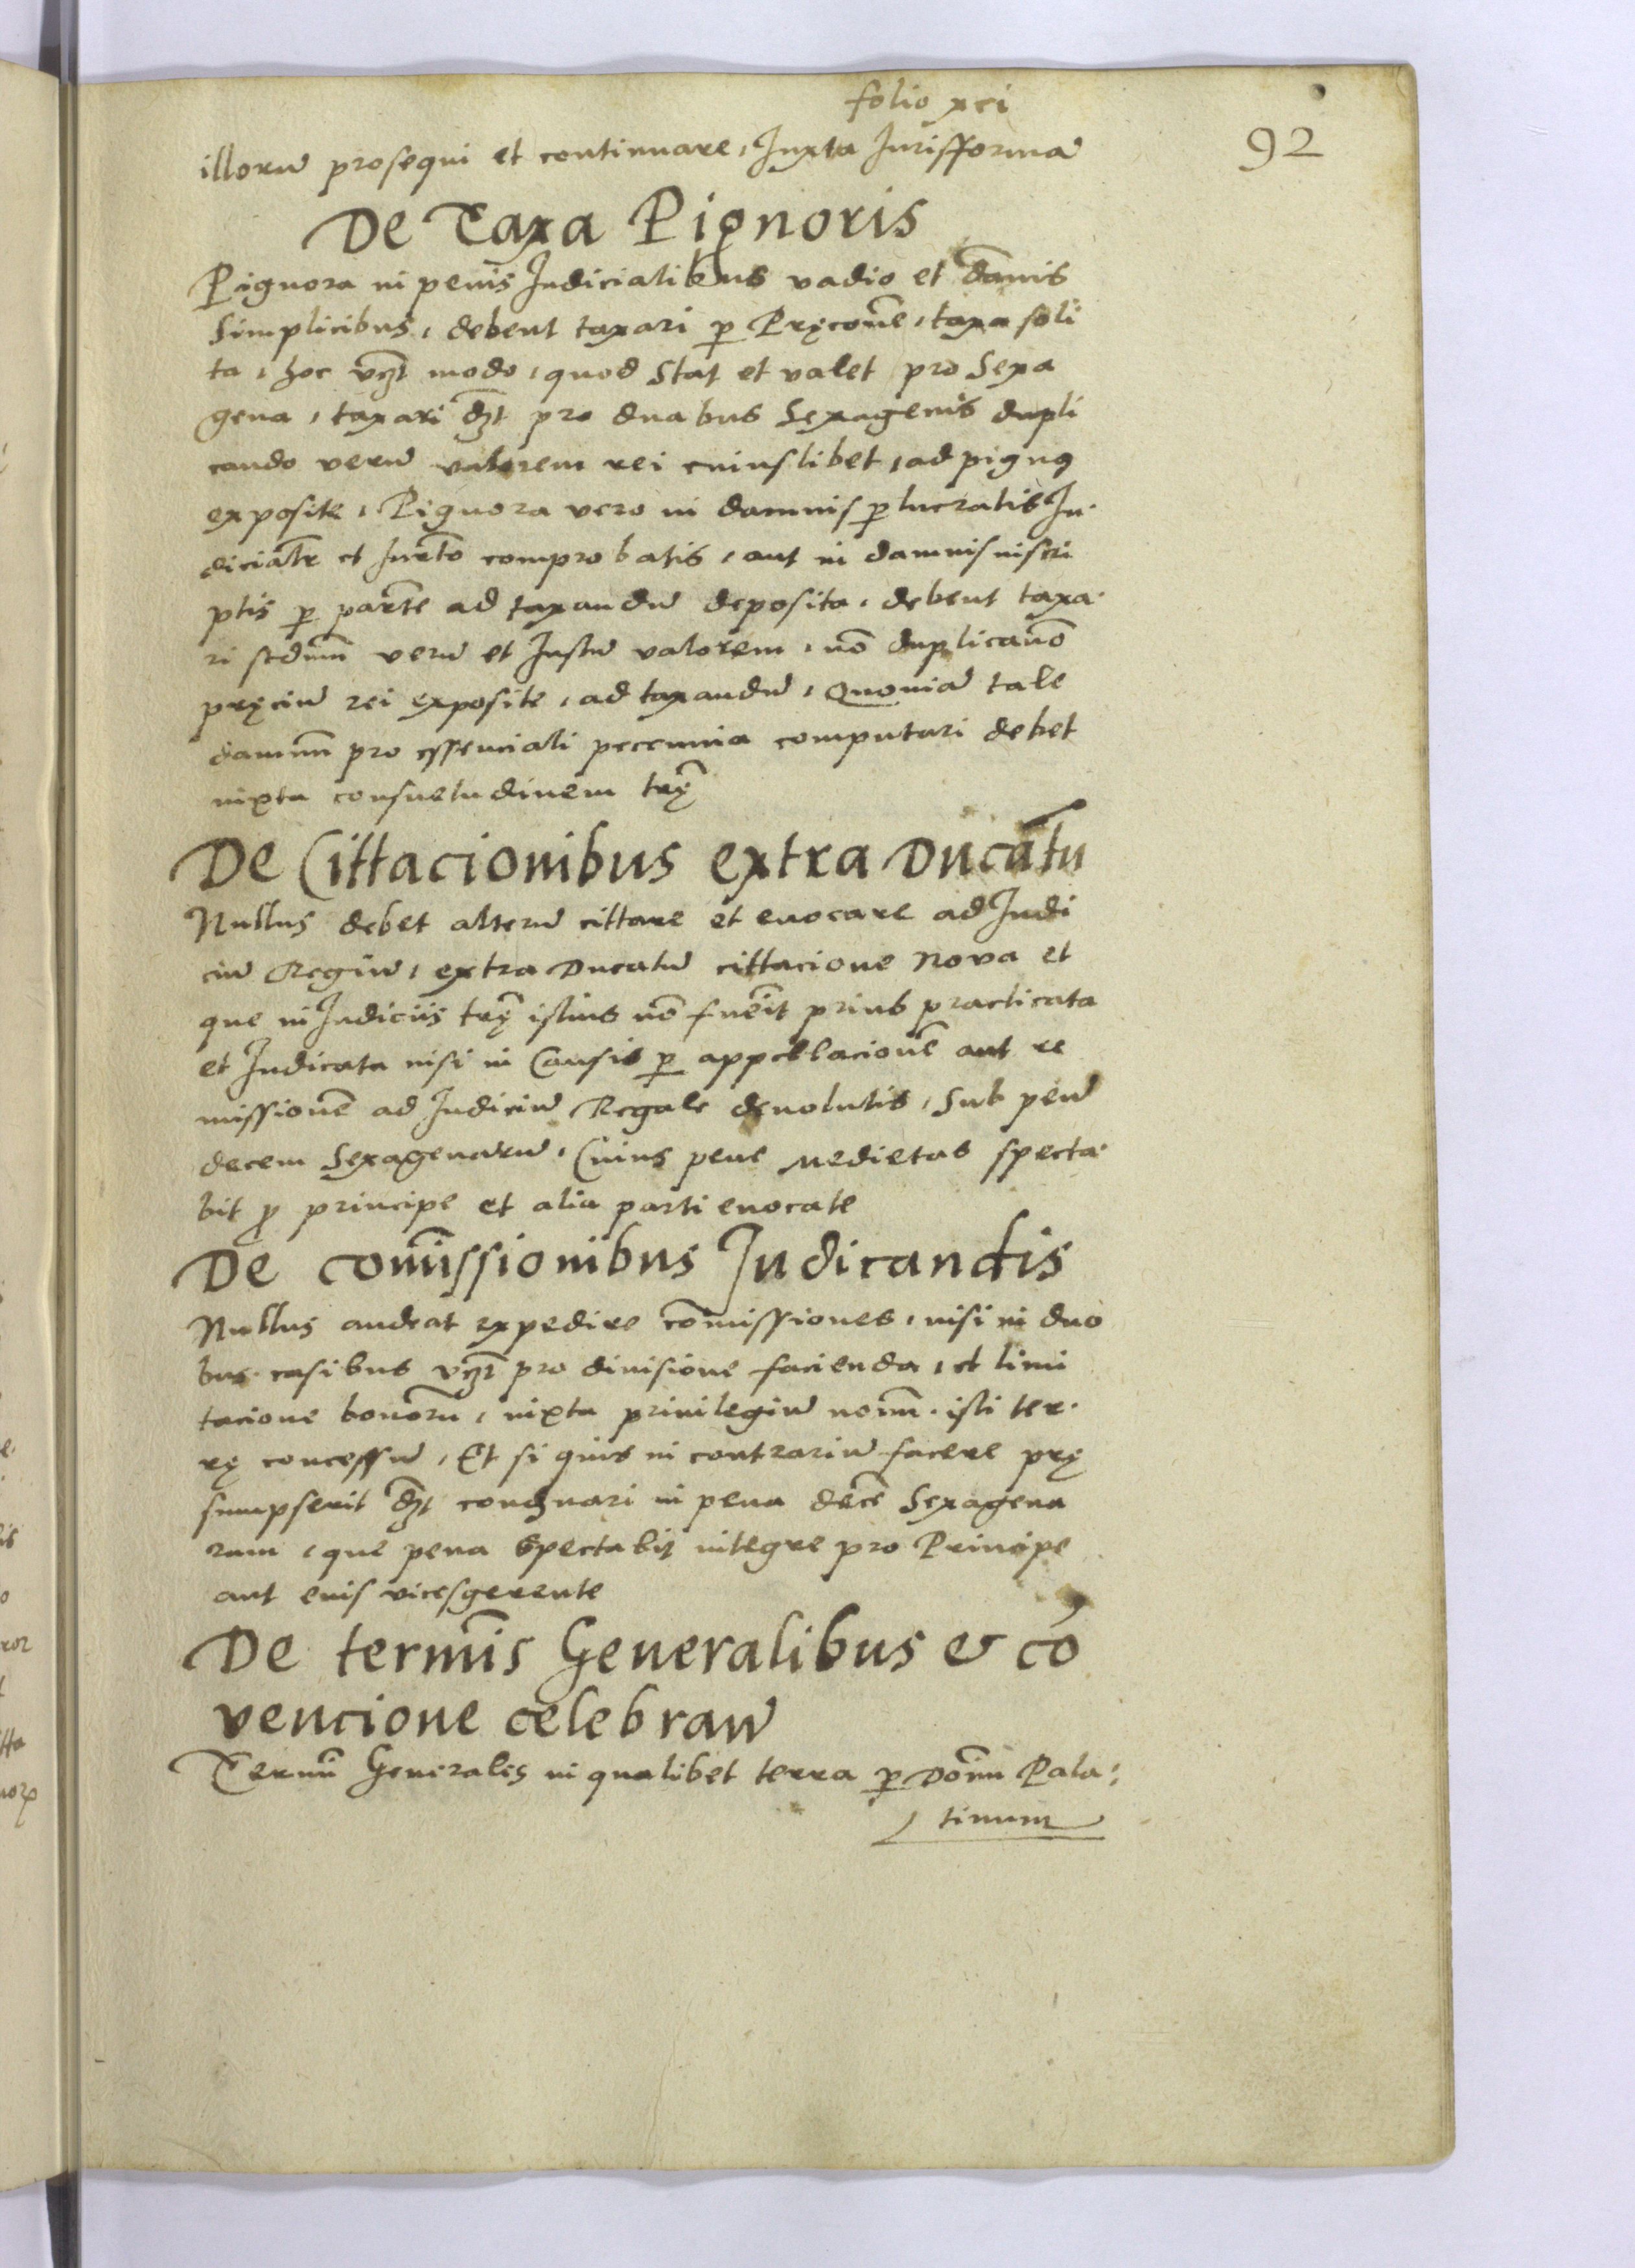 folio xci
92
illorũ prosequi et continuare, Juxta Jurisfformã
De Taxa Pignoris
Pignora in penis Judicialibus vadio et dãnis
Simplicibus, debent taxari ꝑ Pręconẽ, taxa soli
ta, hoc vꝫt modo, quod Stat et valet pro Sexa
gena, taxari dꝫt pro duabus Sexagenis dupli
cando verũ valorem rei cuiuslibet, ad pignꝰ
exposite, Pignora vero in damnis ꝑ lucratis Ju.
diciałr et Jurẽto comprobatis, aut in damnis inscri
ptis ꝑ partẽ ad taxandũ deposita, debent taxa.
ri scdum̃ verũ et Justũ valorem, nõ duplicanõ
pręciũ rei exposite, ad taxandũ, Quoniã tale
damnũ pro essenciali peccunia computari debet
iuxta consuetudinem trę̃
De Cittacionibus extra Ducãtu
Nullus debet alterũ cittare et euocare ad Judi
ciũ Regiũ, extra Ducatũ cittacione Nova et
que in Judiciis trę̃ istius nõ fuẽit prius practicata
et Judicata nisi in Causis ꝑ appellacionẽ aut re
missionẽ ad Judiciũ Regale deuolutis, Sub penã
decem Sexagenarũ, Cuius pene Medietas specta.
bit ꝓ principe et alia parti euocate
De com̃issionibus Judicandis
Nullus audeat expedire com̃issiones, nisi in duo
bus. casibus vꝫt pro diuisione facienda, et limi
tacione bonorũ, iuxta priuilegiũ noum̃. isti ter.
rę concessũ, Et si quis in contrariũ facere prę
sumpserit dꝫt condẽnari in pena decẽ Sexagena
rum, que pena Spectabit integre pro Principe
aut euis vicesgerente
De term̃is Generalibus & cõ
vencione celebranõ
Termiñ Generales in qualibet terra ꝑ Dom̃n Pala:
tinum